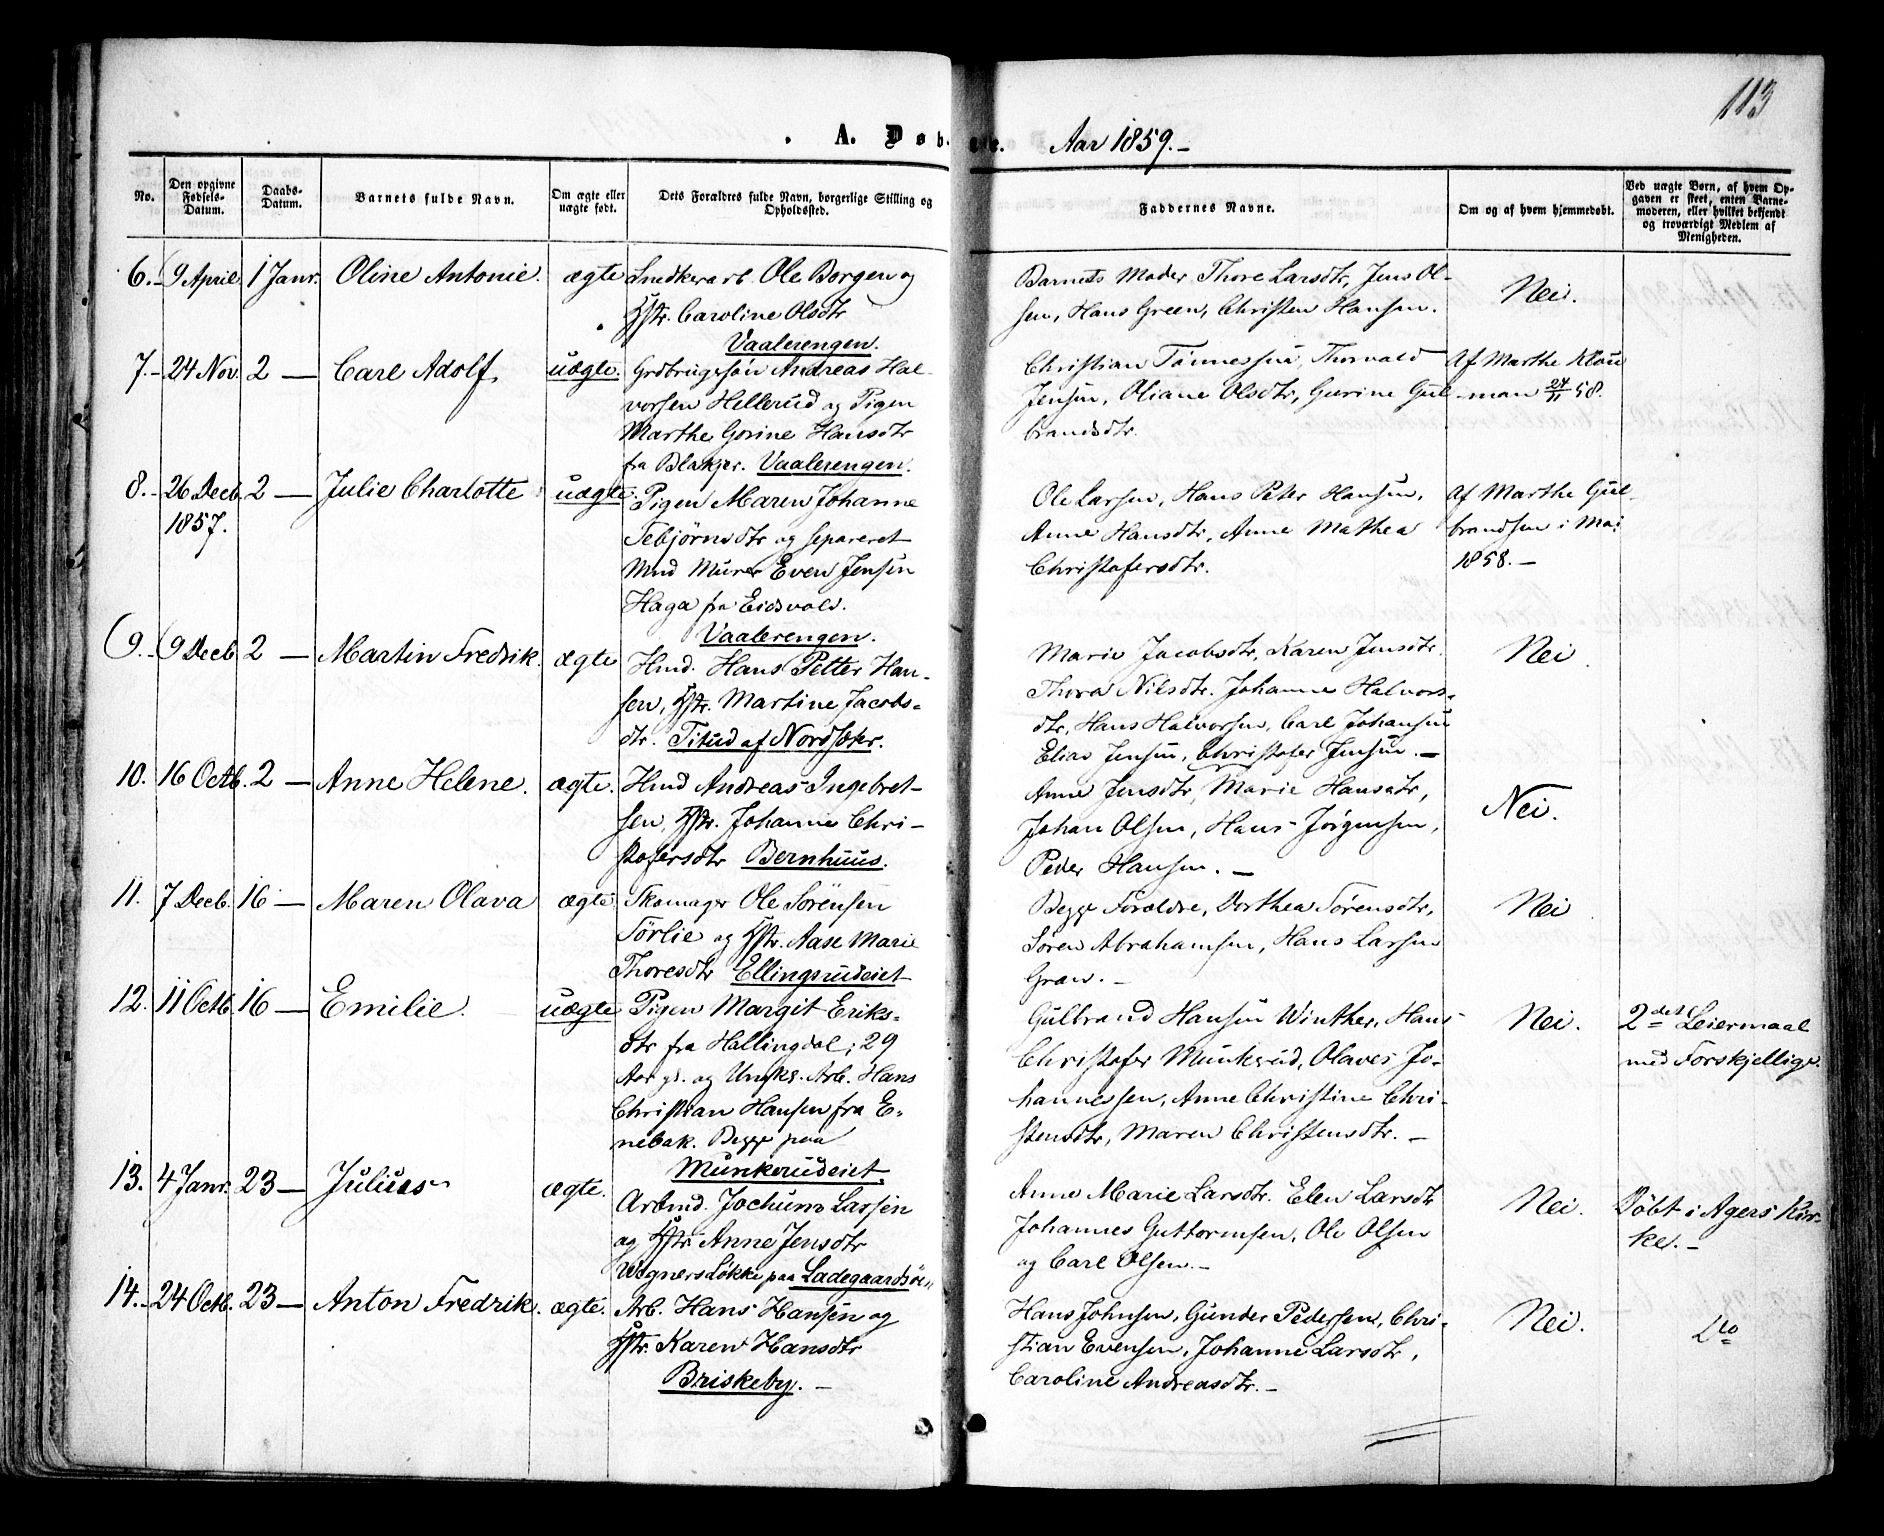 113
A. Døbte. Aar 1859.-
No.
Den opgivne Fødsels-Datum.
Daabs-Datum.
Barnets fulde Navn.
Om ægte eller uægte født.
Dets Forældres fulde Navn, borgerlige Stilling og Opholdssted.
Faddernes Navne.
Om og af hvem hjemmedøbt.
Ved uægte Børn, af hvem Opgaven er skeet, enten Barnemoderen, eller hvilket bekjendt og troværdigt Medlem af Menigheden.
6.- 9 April 1 Janr. Oline Antonie. ægte Snedkerarb. Ole Borgen og
Hstr. Caroline Olsdtr
Vaalerengen.
Barnets Moder, Thore Larsdtr, Jens Ol-
sen, Hans Green, Christen Hansen.
Nei.
7.- 24 Nov. 2 — Carl Adolf. uægte. Grdbrugersøn Andreas Hal-
vorsen Hellerud og Pigen
Marthe Gorine Hansdtr
fra Blakjer. Vaalerengen.
Christian Tønnessen, Thorvald
Jensen, Oliane Olsdtr, Gurine Gul-
brandsdtr.
Af Marthe Klou
man 24/11 58.
8.- 26 Decb. 1857. 2 — Julie Charlotte uægte. Pigen Maren Johanne
Tebjørnsdtr og separeret
Mnd Murer Even Jensen
Haga fra Eidsvold.
Vaalerengen.
Ole Larsen, Hans Peter Hansen,
Anne Hansdtr, Anne Mathea
Christofersdtr.
Af Marthe Gul-
brandsen i Mai
1858.-
(9.- (9 Decb 2 — Martin Fredrik. ægte Hmd. Hans Petter Han-
sen, Hstr. Martine Jacobs-
dtr. Titud af Nordstkr.
Marie Jacobsdtr, Karen Jensdtr.
Thora Nilsdtr. Johanne Halvors-
dtr, Hans Halvorsen, Carl Johansen
Elias Jensen, Christofer Jensen.-
Nei.
10. 16 Octb. 2 — Anne Helene. ægte. Hmd Andreas Ingebret-
sen, Hstr. Johanne Chri-
stofersdtr Bernhuus.
Anne Jensdtr, Marie Hansdtr,
Johan Olsen, Hans Jørgensen,
Peder Hansen.-
Nei.
11. 7 Decb. 16 — Maren Olava ægte. Skomager Ole Sørensen
Sørlie og Hstr. Aase Marie
Thoresdtr Ellingsrudeiet
Begge Forældre, Dorthea Sørensdtr,
Søren Abrahamsen, Hans Larsen
Gran.-
Nei
12. 11 Octb. 16 — Emilie. uægte Pigen Margit Eriks-
dtr fra Hallingdal; 29
Aar gl. og Ungk. Arb. Hans
Christian Hansen fra E-
nebak. Begge paa
Munkerudeiet.
Gulbrand Hansen Winther, Hans
Christofer Munkerud, Olaves Jo-
hannessen, Anne Christine Chri-
stensdtr, Maren Christensdtr.-
Nei.
2det Leiermaal
med Forskjellige.
13. 4 Janr. 23 — Julius ægte. Arbmd. Jochum Larsen
og Hstr. Anne Jensdtr
Wogners Løkke paa Ladegaardsøe
Anne Marie Larsdtr. Elen Larsdtr
Johannes Guttormsen, Ole Olsen
og Carl Olsen.-
Nei.
Døbt i Agers Kir-
ke.-
14.- 24 Octb. 23 — Anton Fredrik. ægte. Arb. Hans Hansen og
Hstr. Karen Hansdtr
Briskeby.-
Hans Johnsen, Gunder Pedersen, Chri-
stian Evensen, Johanne Larsdtr,
Caroline Andreasdtr.-
Nei.
Do